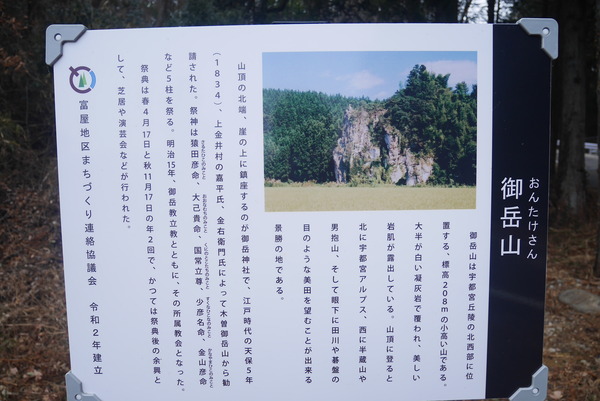 おんたけさん
御岳山
御岳山は宇都宮丘陵の北西部に位
置する、標高208mの小高い山である。
大半が白い凝灰岩で覆われ、美しい
岩肌が露出している。山頂に登ると
北に宇都宮アルプス、西に半蔵山や
男抱山、そして眼下に田川や碁盤の
目のような美田を望むことが出来る
景勝の地である。
山頂の北端、崖の上に鎮座するのが御岳神社で、江戸時代の天保5年
(1834)、上金井村の嘉平氏、金右衛門氏によって木曽御岳山から勧
請された。祭神は猿田彦命、大己貴命、国常立尊、少彦名命、金山彦命
さるたひこのみこと おおなむちのみこと くにのとこたちのみこと すくなひこなのみこと かなやまひこのみこと
など5柱を祭る。明治15年、御岳教立教とともに、その所属教会となった。
祭典は春4月17日と秋11月17日の年2回で、かつては祭典後の余興と
して、芝居や演芸会などが行われた。
富屋地区まちづくり連絡協議会 令和2年建立